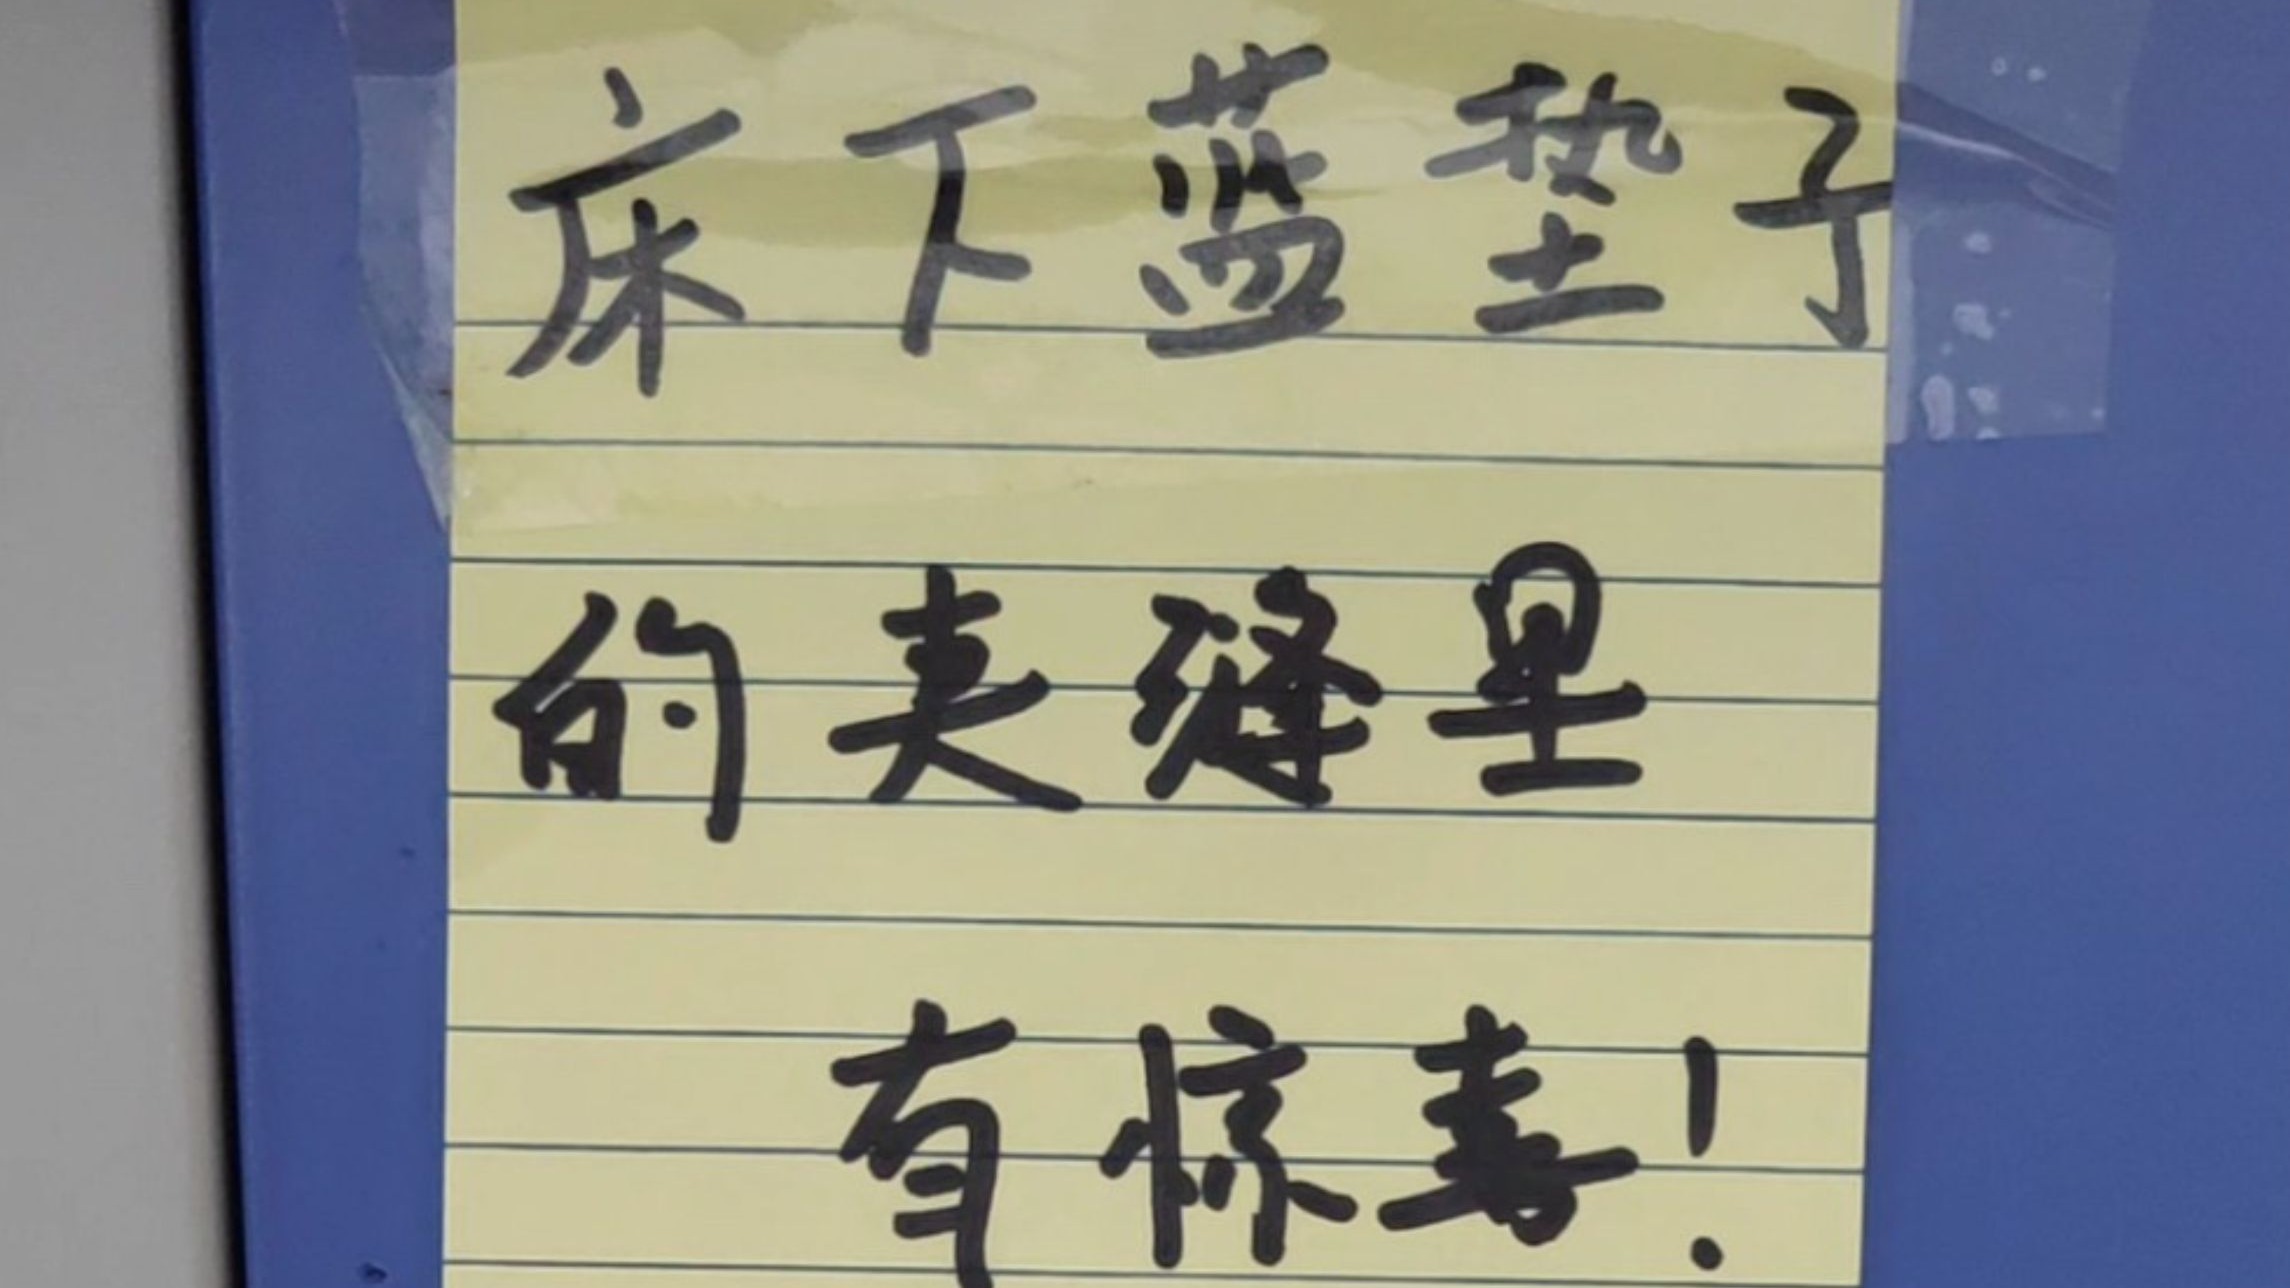 床下蓝垫子
的夹缝里
有惊喜!